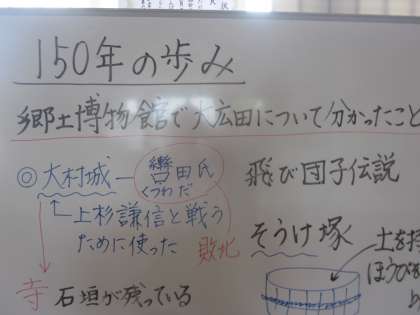 150年の歩み
郷土博物館で大広田について分かったこと
◎大村城―轡田氏
くつわだ
上杉謙信と戦う
ために使った
敗北
寺 石垣が残っている
飛び団子伝説
そうけ塚
土を
ほうびを